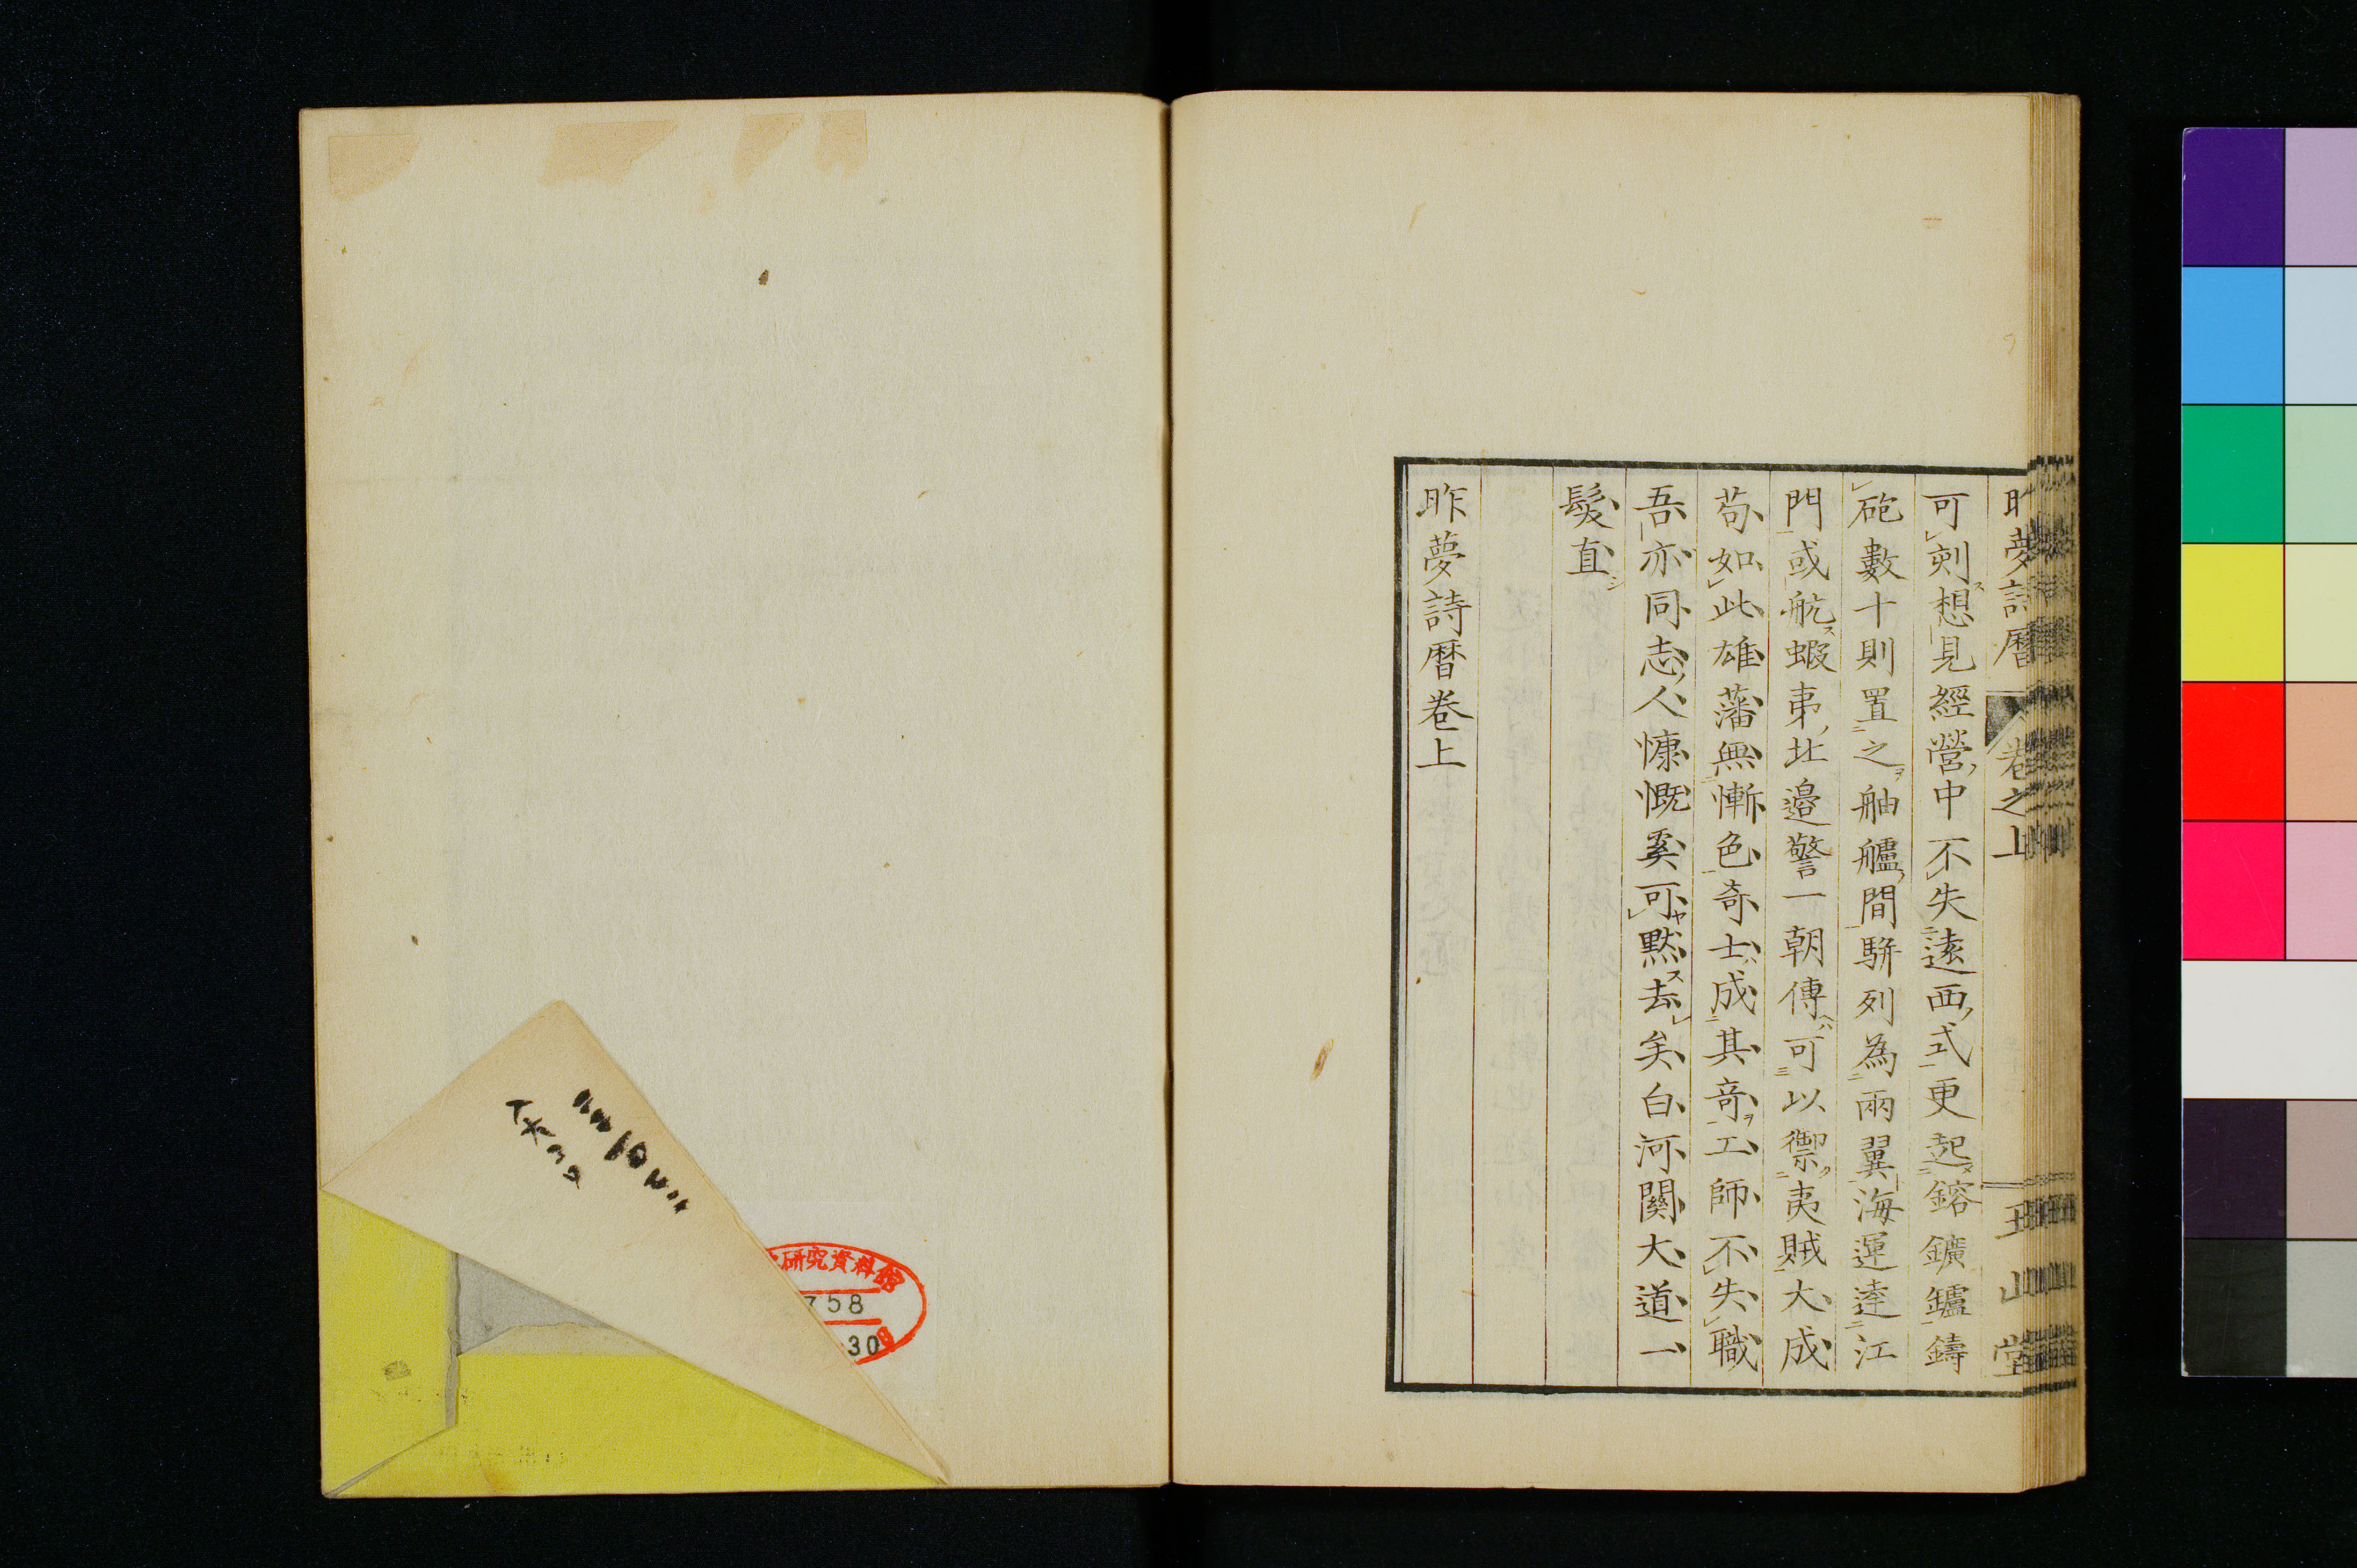 昨夢詩曆 卷之上 玉山堂
可剡想見經營中不失遠西式更起鎔鑛鑪鑄
砲數十則置之舳艫間駢列為兩翼海運達江
門或航蝦夷北邉警一朝傳可以禦夷賊大成
苟如此雄藩無慚色奇士成其竒工師不失職
吾亦同志人慷慨奚可黙去矣白河關大道一
髮直
昨夢詩曆卷上
研究資料館
758
30